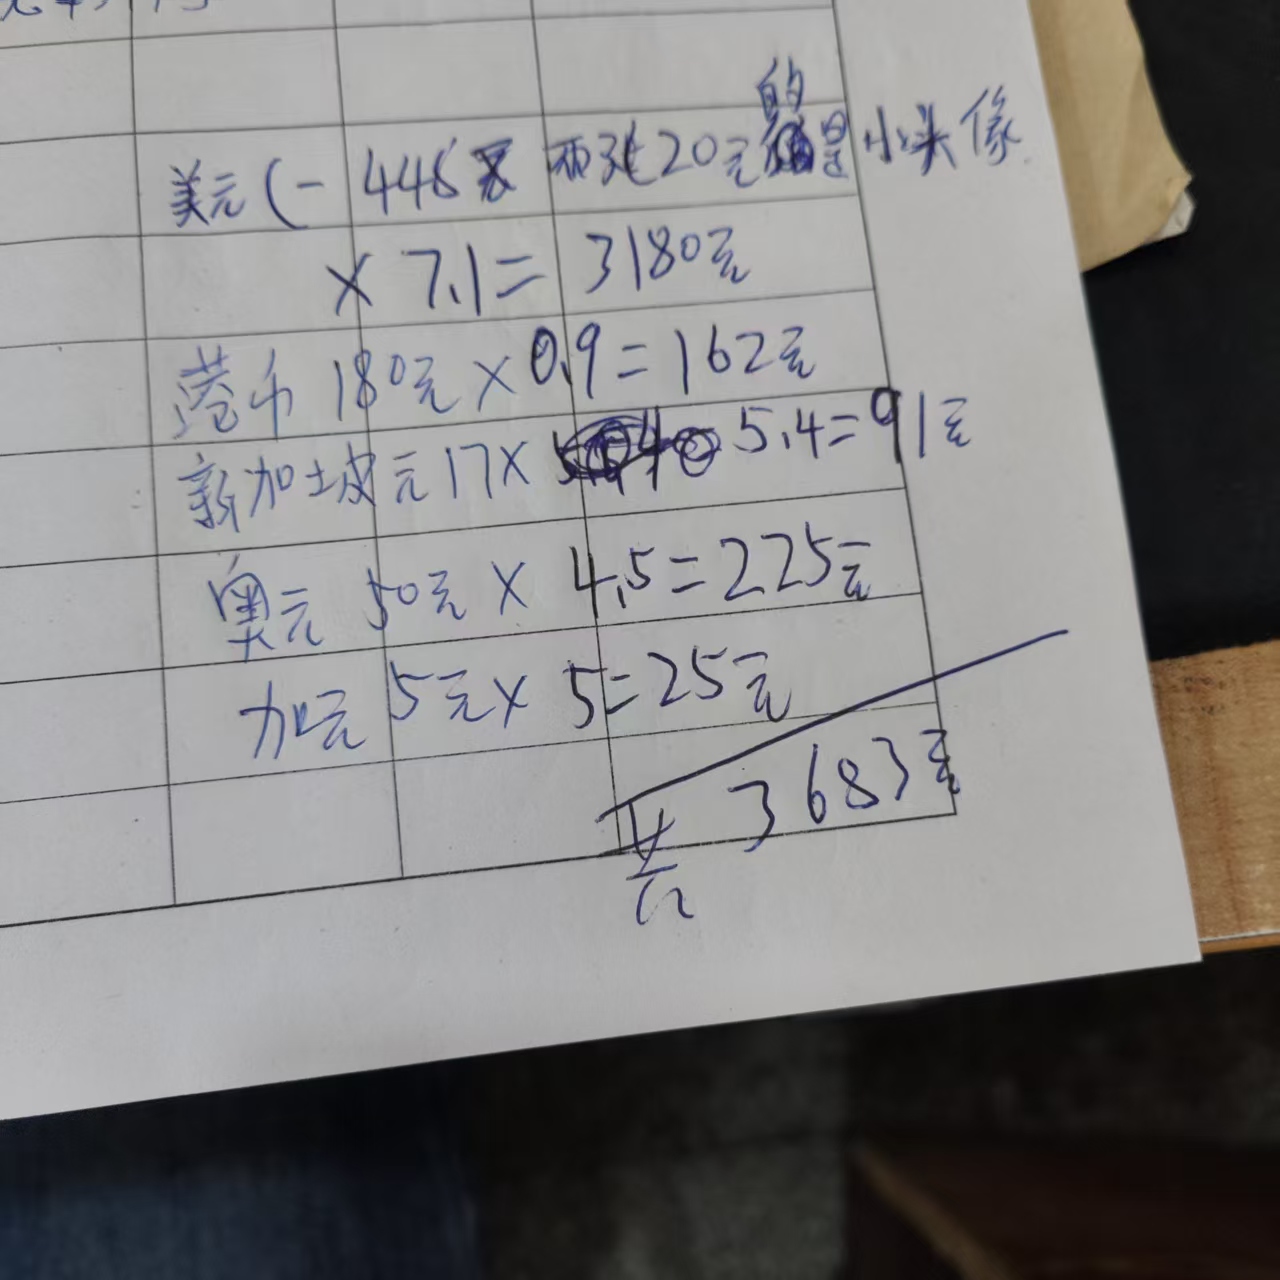 美元(- 448 两张20元的是小头像
× 7.1 = 3180元
港币 180元 × 0.9 = 162元
新加坡元 17 × 5.4 = 91元
奥元 50元 × 4.5 = 225元
加元 5元 × 5 = 25元
共 3683元